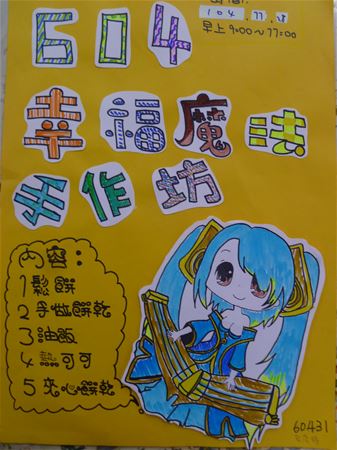 104.11.28
早上9:00~11:00
604
幸福魔法
手作坊
內容:
1鬆餅
2手做餅乾
3油飯
4熱可可
5夾心餅乾
60431